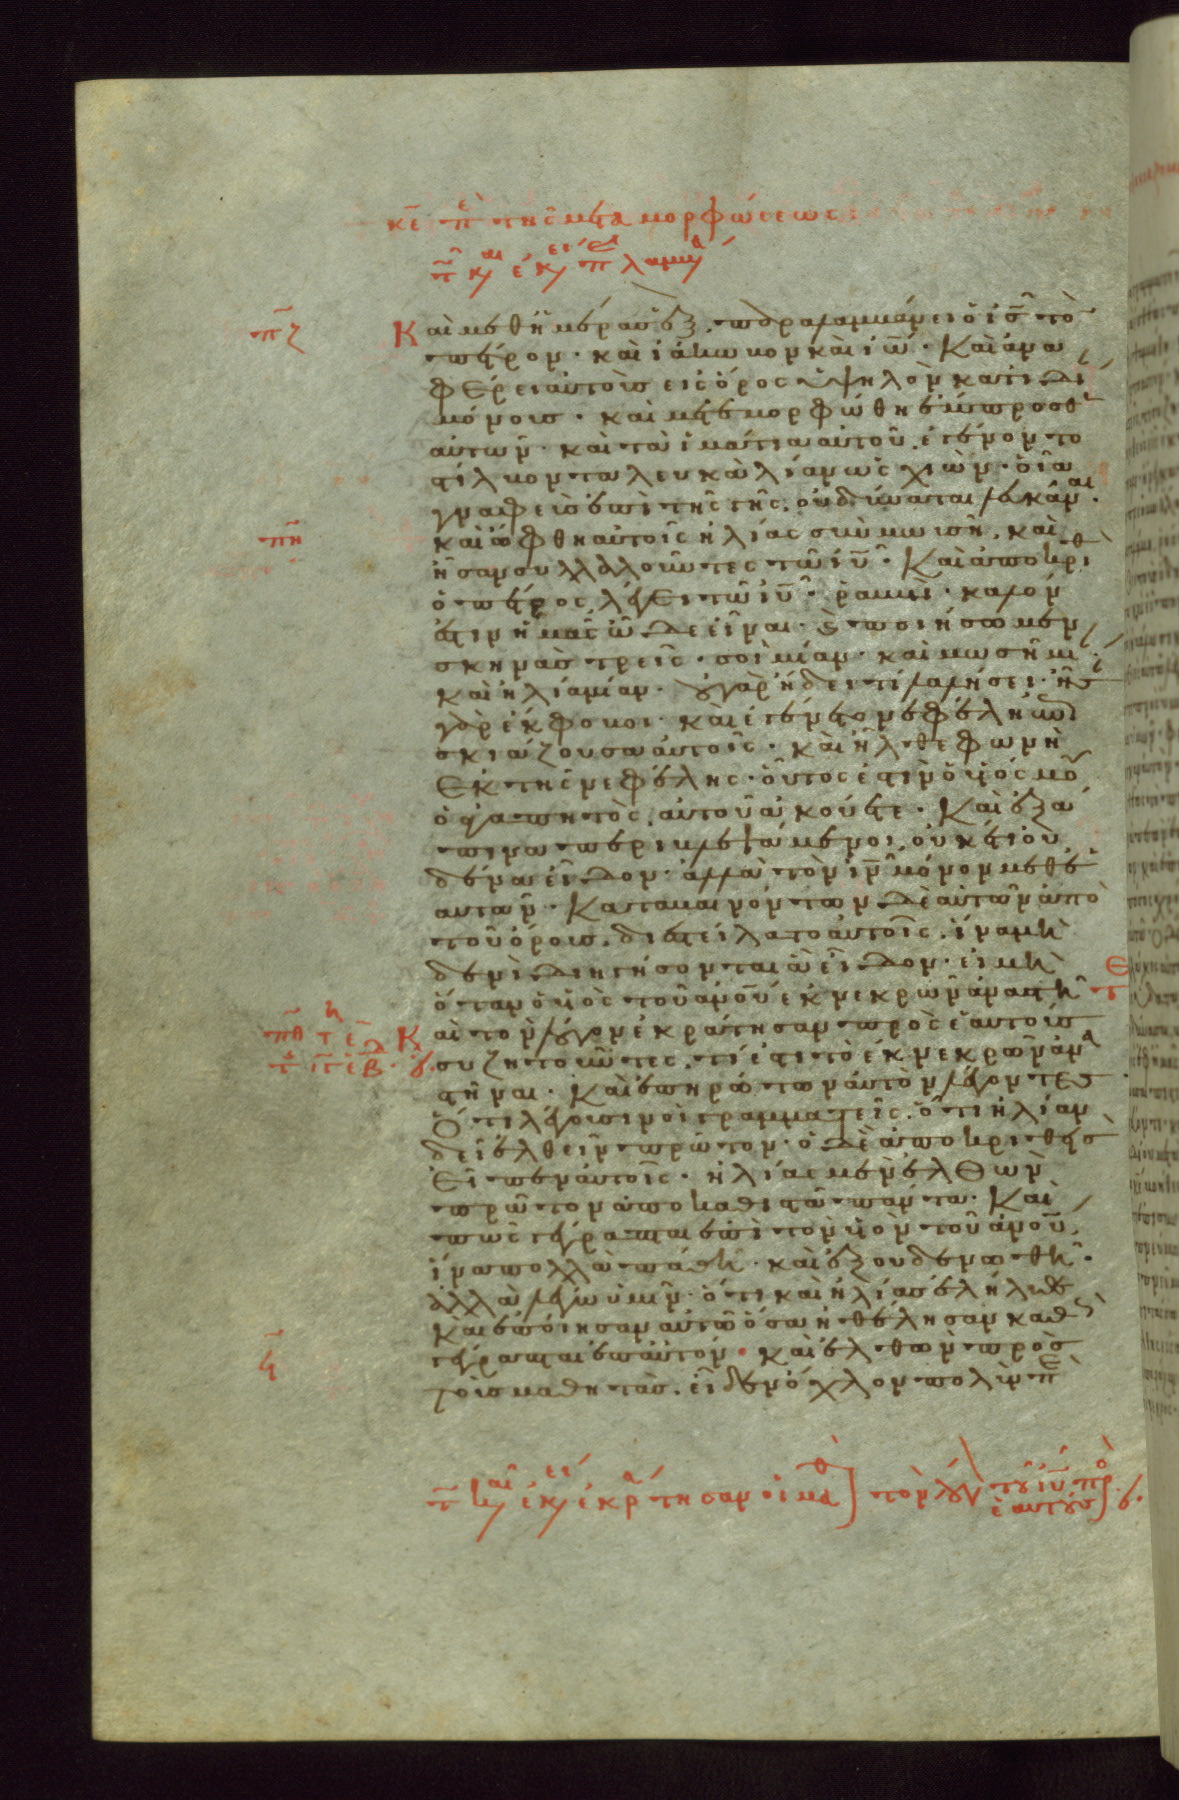 κε π̅ε̅ της μεταμορφώσεως
τ̅ κ,αι ἐκ,ει π λαμμ,α
π̅ζ
Και μεθ ημέρας ἓξ παραλαμβάνει ὁ ι̅ς̅ τὸ
πέτρον · και ϊάκωβον και ϊω̅ · Και ἀνα
φέρει αὐτοὺς εις όρος ὑψηλὸν κατιδί
μόνους · και μετεμορφώθη ἔμπροσθ
αὐτων · και τὰ ἱμάτια αὐτοῦ ἐγένοντο
στίλβοντα λευκὰ λίαν ὡς χιὼν · οἷα
γναφεὺς ἐπὶ της γης οὐ δύναται λευκᾶναι ·
π̅η̅
και ὤφθη αὐτοῖς ηλίας σὺν μωυσῆ, και
ἦσαν συλλαλοῦντες τῶ ι̅υ̅ · Και ἀποκριθ
ὁ πέτρος λέγει τῶ ι̅υ̅ · ραββὶ · καλόν
ἐστιν ἡμᾶς ὧδε εἶναι · και ποιήσωμεν
σκηνὰς τρεῖς · σοὶ μίαν · και μωσῆ μί
και ηλία μίαν · οὐ γὰρ ἤδει τί λαλήσει · ἦς
γὰρ ἔκφοβοι · και ἐγένετο νεφέλη ἐπι
σκιάζουσα αὐτοῖς · και ἦλθε φωνὴ
ἐκ της νεφέλης · οὗτος ἐστιν ὁ υἱός μου
ὁ ἀγαπητὸς, αὐτοῦ ἀκούετε · Και ἐξά
πινα περιβλεψάμενοι, οὐκέτι οὐ
δένα εἶδον · ἀλλὰ τὸν ι̅ν̅ μόνον μεθ ἑ
αυτων · Καταβαινόντων δὲ αὐτῶν ἀπὸ
τοῦ όρους, διεστείλατο αὐτοῖς, ἵνα μη
δενὶ διηγήσονται ἃ εἶδον · εἰ μὴ
ὅταν ὁ υἱὸς τοῦ ἀνου̅ ἐκ νεκρῶν ἀναστῆ · τε
π̅θ̅
Και τὸν λόγον ἐκράτησαν πρὸς ἑαυτοὺς
συζητοῦντες, τί ἐστι τὸ ἐκ νεκρῶν ἀνα
στῆναι · Και ἐπηρώτων αὐτὸν λέγοντες
Ὅτι λέγουσιν οἱ γραμματεῖς, ὅτι ηλίαν
δεῖ ἐλθεῖν πρῶτον · ὁ δὲ ἀποκριθεὶς
εἶπεν αὐτοῖς · ηλίας μὲν ἐλθὼν
πρῶτον ἀποκαθιστᾶ πάντα · Και
πῶς γέγραπται ἐπὶ τὸν υἱὸν τοῦ ἀνου̅,
ἵνα πολλὰ πάθη · και ἐξουδενωθῆ ·
ἀλλὰ λέγω ὑμῖν · ὅτι και ηλίας ἐλήλυθε
και ἐποίησαν αὐτῶ ὅσα ἠθέλησαν καθὼς
γέγραπται ἐπ αὐτόν · και ἐλθὼν πρὸς
τοὺς μαθητὰς, εἶδεν όχλον πολὺν πε
τ̅ κ,αι ἐκ,ει ἐκράτησαν οἱ μαθ τὸν λόγον του ι̅υ̅ πρὸ
ἑαυτούς